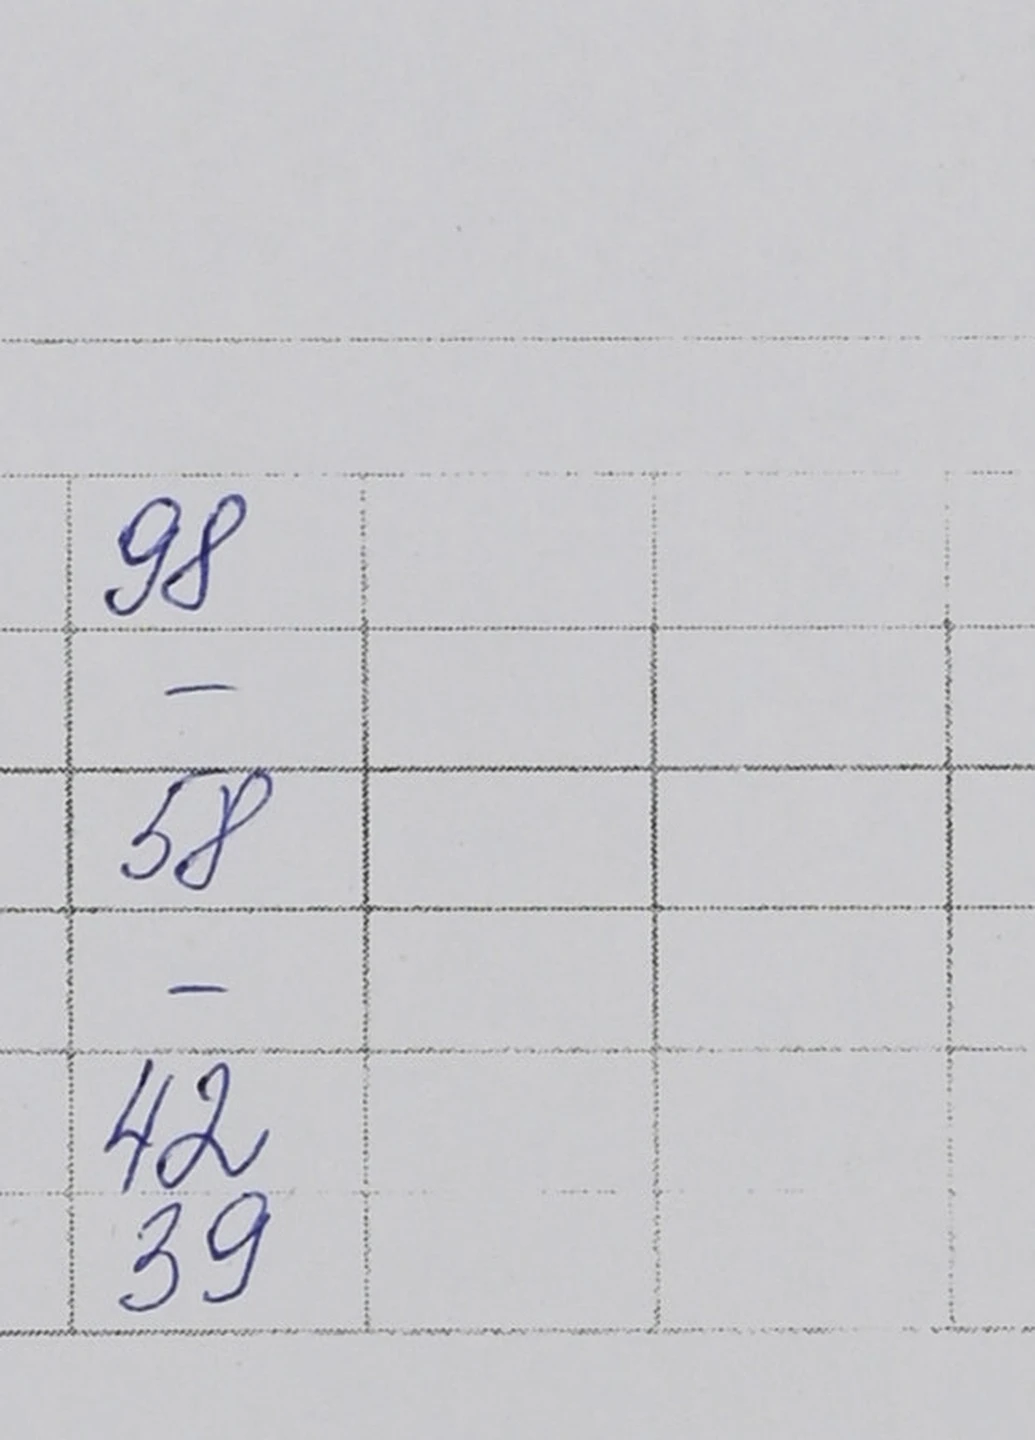 98
–
58
–
42
39